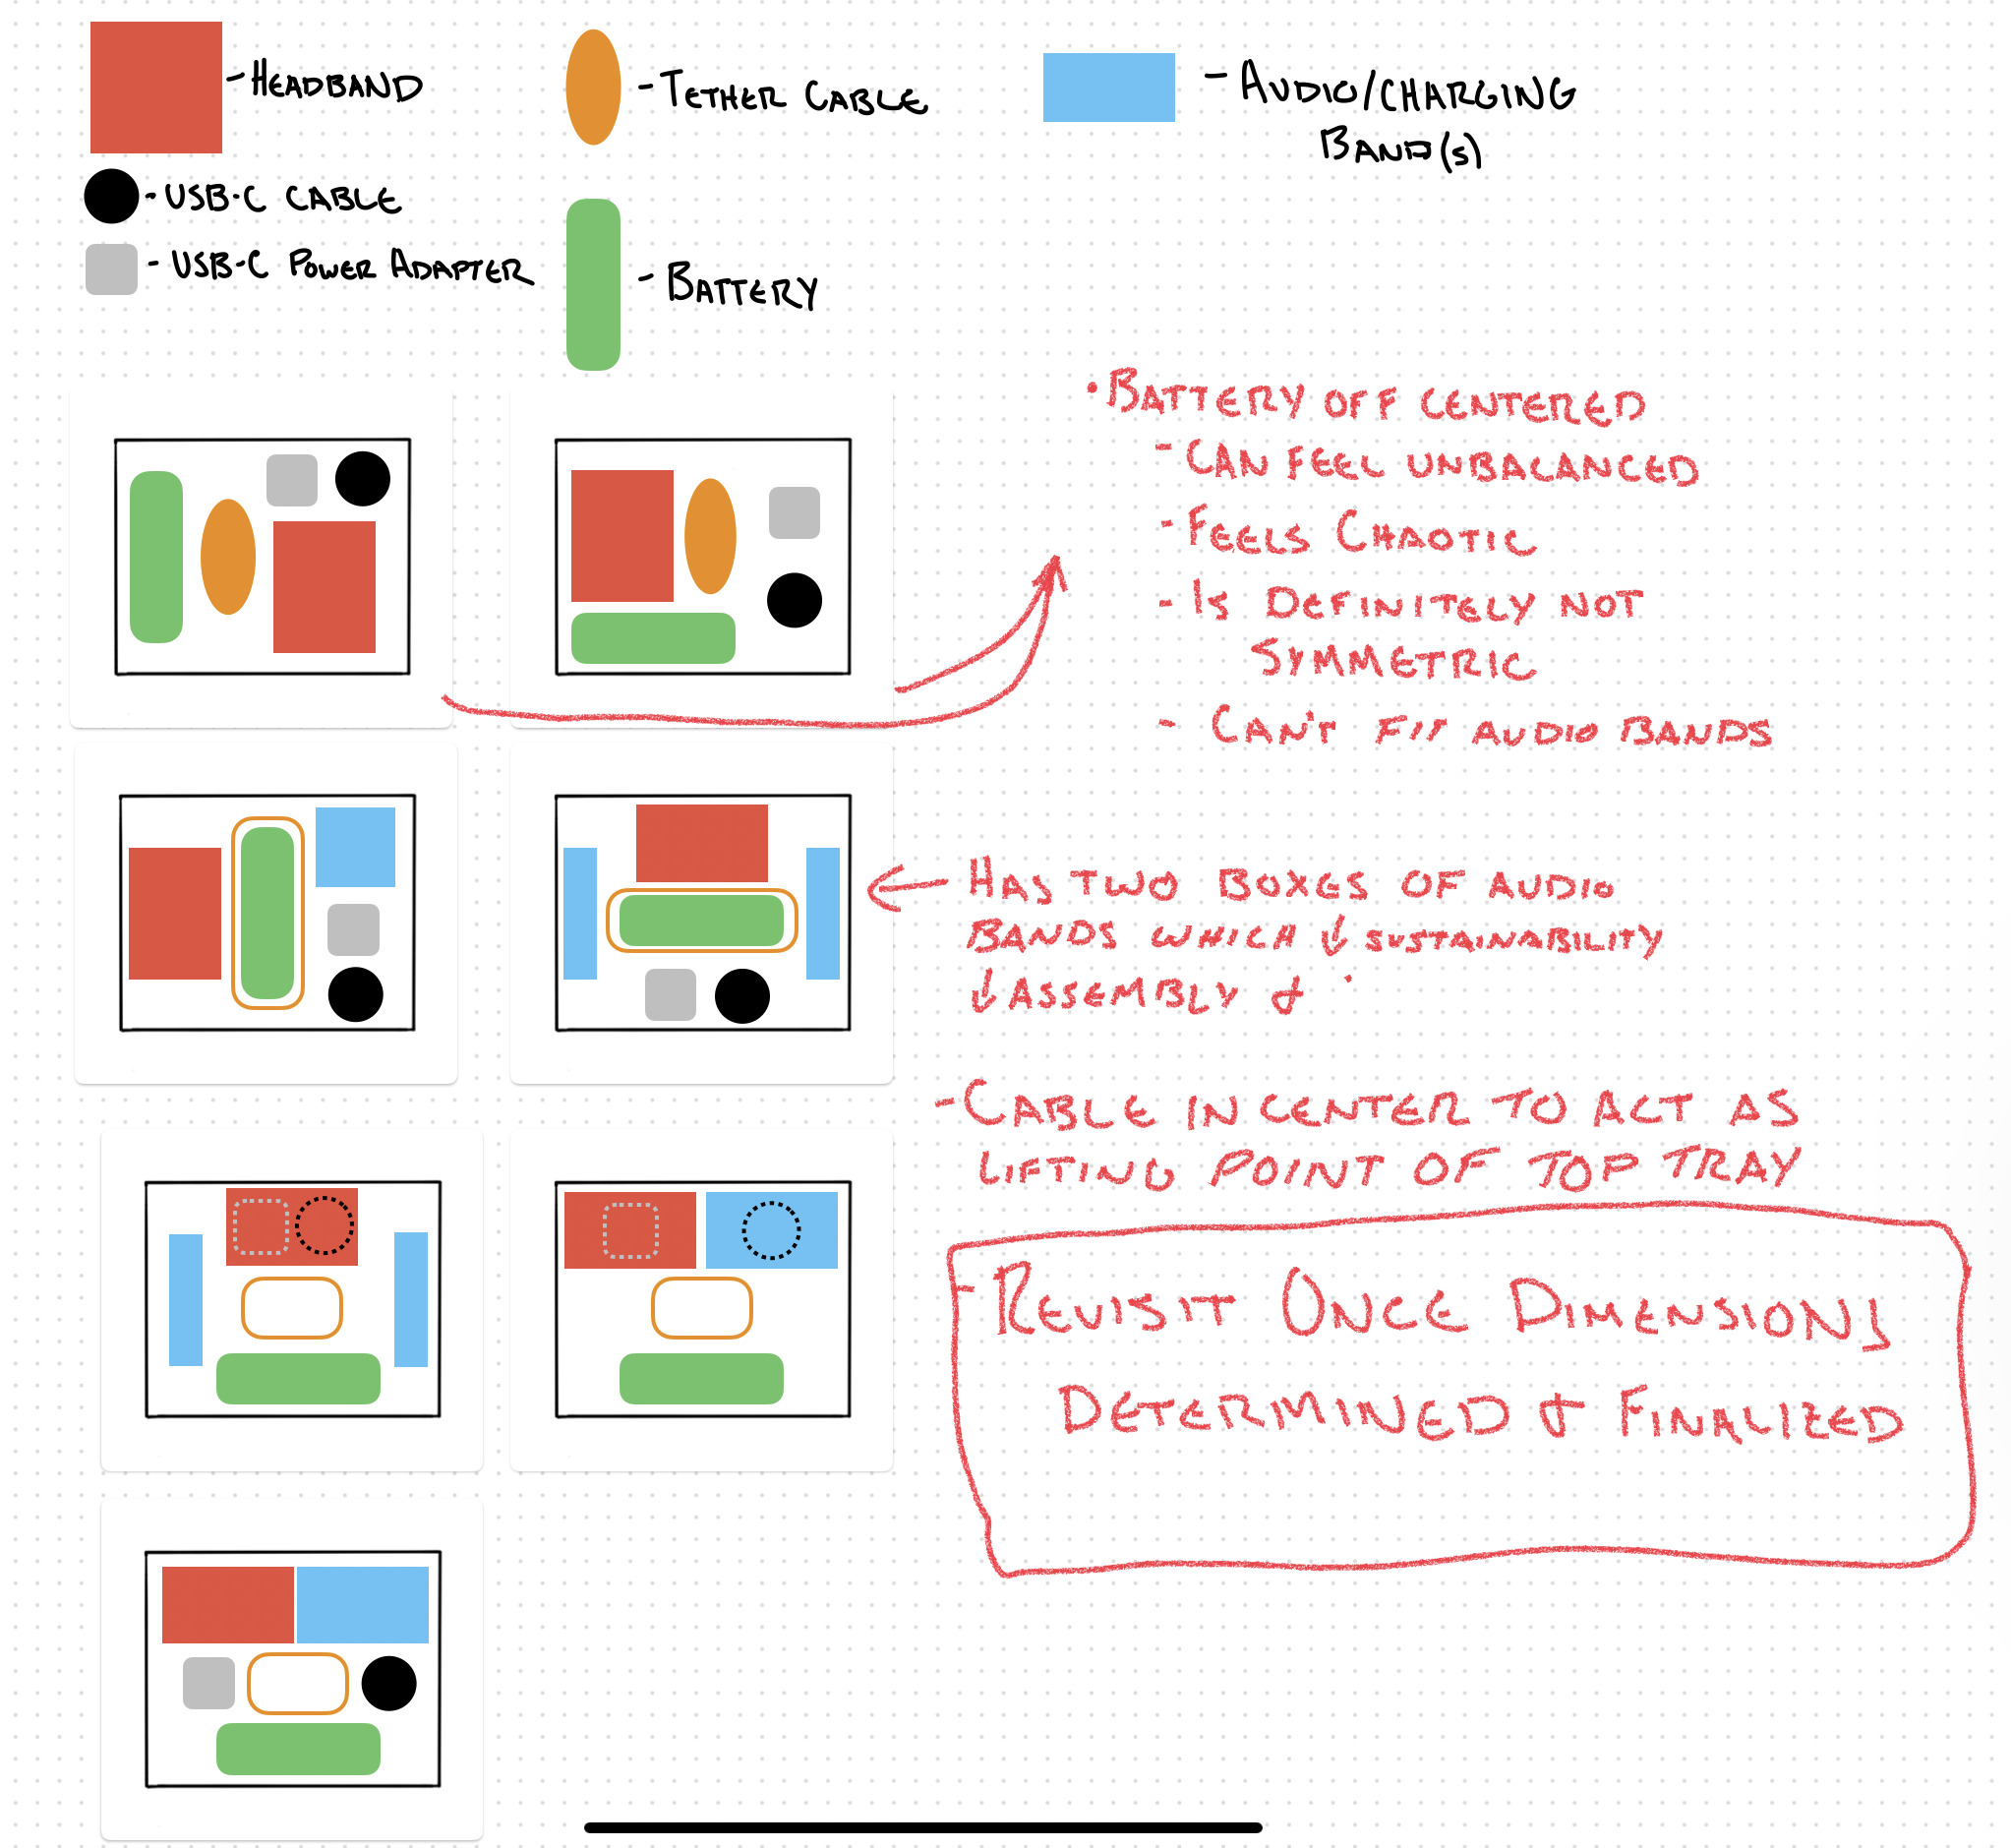 - HEADBAND
- TETHER CABLE
- AUDIO/CHARGING
BAND(S)
- USB-C CABLE
- USB-C POWER ADAPTER
- BATTERY
• BATTERY OFF CENTERED
- CAN FEEL UNBALANCED
- FEELS CHAOTIC
- IS DEFINITELY NOT
SYMMETRIC
- CAN'T FIT AUDIO BANDS
← HAS TWO BOXES OF AUDIO
BANDS WHICH ↓ SUSTAINABILITY
↓ ASSEMBLY &
- CABLE IN CENTER TO ACT AS
LIFTING POINT OF TOP TRAY
- REVISIT ONCE DIMENSIONS
DETERMINED & FINALIZED